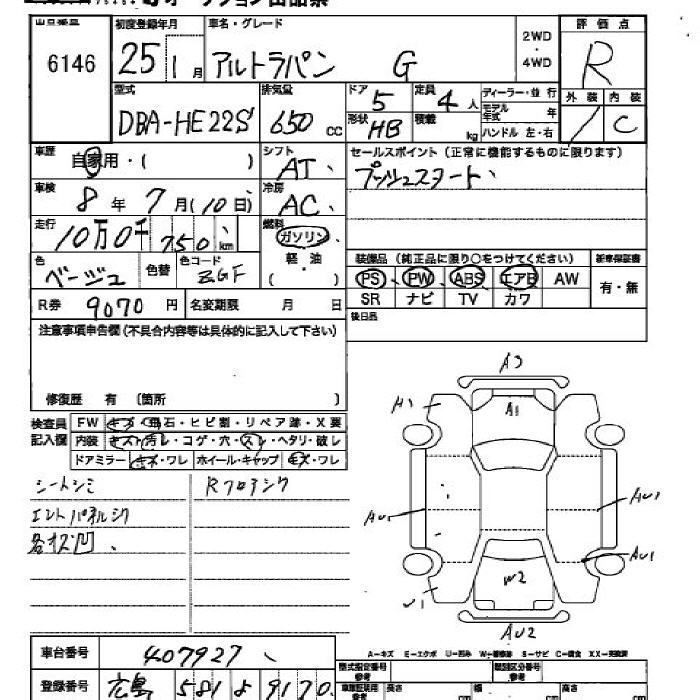 出品番号 初度登録年月 車名・グレード 2WD・4WD 評価点
6146 25 1月 アルトラパン G R
型式 排気量 ドア 定員 ディーラー・並行 外装 内装
DBA-HE22S 650 cc 5 4人 モデル年式 年 / C
形状 HB 積載 kg ハンドル 左・右
車歴 自家用・( ) シフト AT、 セールスポイント(正常に機能するものに限ります)
車検 8年7月(10日) 冷房 AC、 プッシュスタート、
走行 10万0千750km 燃料 ガソリン、
色 ベージュ 色替 色コード ZGF 軽油 ( )
装備品(純正品に限り○をつけてください) 新車保証書
PS、PW、ABS、エアB AW 有・無
SR ナビ TV カワ
R券 9070円 名変期限 月 日 後日品
注意事項申告欄(不具合内容等は具体的に記入して下さい)
修復歴 有 〔箇所 〕
検査員記入欄 FW キズ・飛石・ヒビ割・リペア跡・X要
内装 キズ・汚レ・コゲ・穴・スレ・ヘタリ・破レ
ドアミラー キズ・ワレ ホイール・キャップ キズ・ワレ
シートシミ Rフロアシワ
各キズ凹、
A3
A1 A1
AU1
AU1
W2
U1
AU2
A-キズ E-エクボ U-凹み W-補修跡 S-サビ C-腐食 XX-交換済
車台番号 407927、
型式指定番号 参考 類別区分番号 参考
登録番号 広島 581 よ 9170
長さ cm 幅 cm 高さ cm